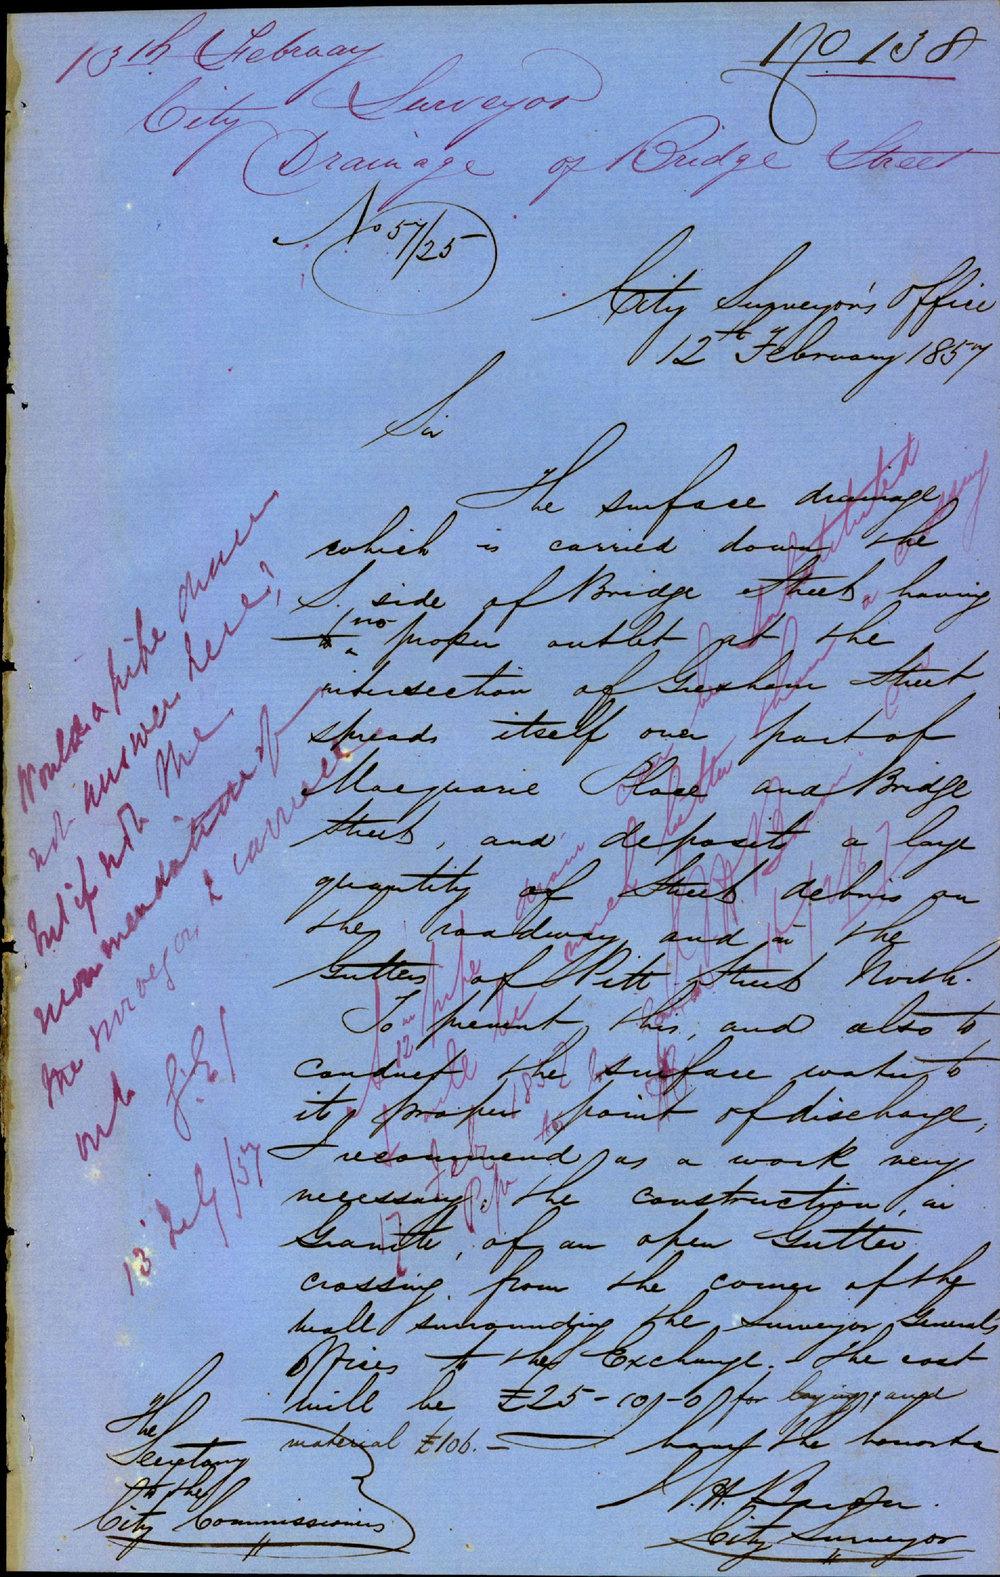 13th February
No 138
City Surveyor
Drainage of Bridge Street
No 57/25
City Surveyor's Office
12th February 1857
Sir
The surface drainage,
which is carried down the
S. side of Bridge Street, having
no proper outlet at the
intersection of Gresham Street
spreads itself over part of
Macquarie Place and Bridge
Street, and deposits a large
quantity of Street debris on
the roadway and in the
Gutters of Pitt Street North.
To prevent this, and also to
conduct the surface water to
its proper point of discharge,
I recommend as a work very
necessary, the construction, in
Granite, of an open Gutter
crossing from the corner of the
wall surrounding the Surveyor Generals
Offices to the Exchange. The cost
will be £25-10-0 for laying, and
material £106.—
have the honor to
City Surveyor
The
Secretary
to the
City Commissioners
Would a pipe drain
not answer here?
but if not the
recommendation of
the surveyor, & carried
out
13 Feby/57
A 12 in pipe drain can be substituted
will be much better than a
17 Feb 1857